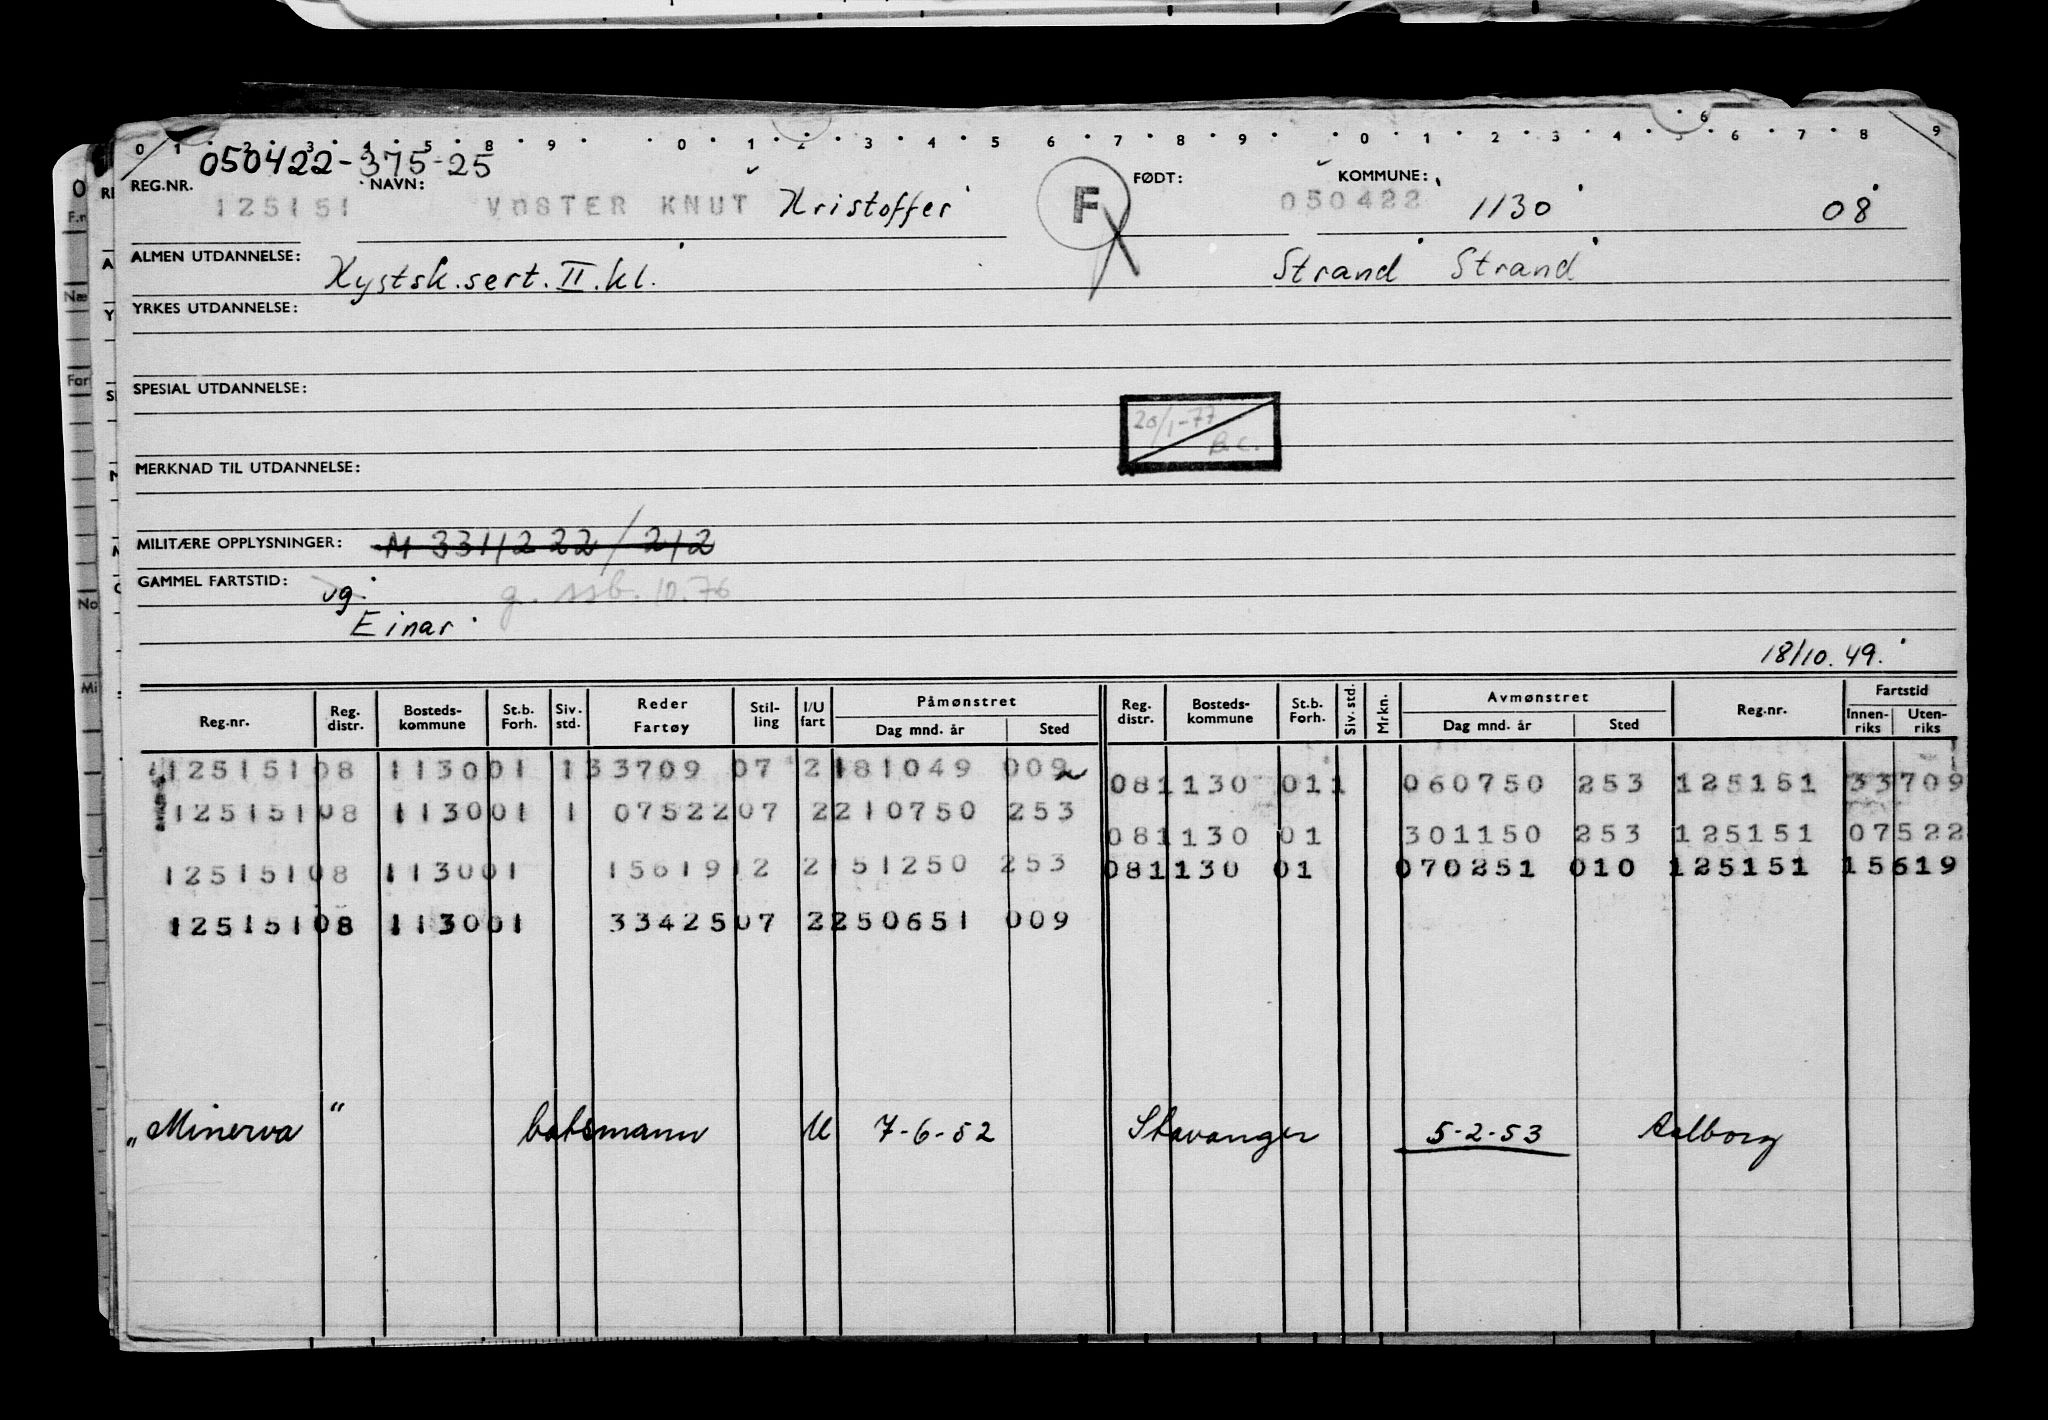 0 1 2 3 4 5 8 9 0 1 2 3 4 5 6 7 8 9 0 1 2 3 4 5 6 7 8 9
050422-375-25
REG.NR. NAVN: FØDT: KOMMUNE:
125151 VØSTER KNUT Kristoffer F 050422 1130 08
ALMEN UTDANNELSE: Kystsk.sert. II.kl. Strand Strand
YRKES UTDANNELSE:
SPESIAL UTDANNELSE:
20/1-77
B.C.
MERKNAD TIL UTDANNELSE:
MILITÆRE OPPLYSNINGER: M 3311222/212
GAMMEL FARTSTID: vg. g. ssb. 10.76
Einar
18/10.49.
Reg.nr. Reg. distr. Bosteds-kommune St.b. Forh. Siv. std. Reder Fartøy Stil-ling I/U fart Påmønstret Dag mnd. år Sted Reg. distr. Bosteds-kommune St.b. Forh. Siv. std. Mrkn. Avmønstret Dag mnd. år Sted Reg.nr. Fartstid Innen-riks Uten-riks
125151 08 1130 01 1 33709 07 2 181049 009 08 1130 01 1 060750 253 125151 33709
125151 08 1130 01 1 07522 07 2 210750 253 08 1130 01 301150 253 125151 07522
125151 08 1130 01 15619 12 2 151250 253 08 1130 01 070251 010 125151 15619
125151 08 1130 01 33425 07 2 250651 009
„Minerva" batsmann U 7-6-52 Stavanger 5-2-53 Aalborg